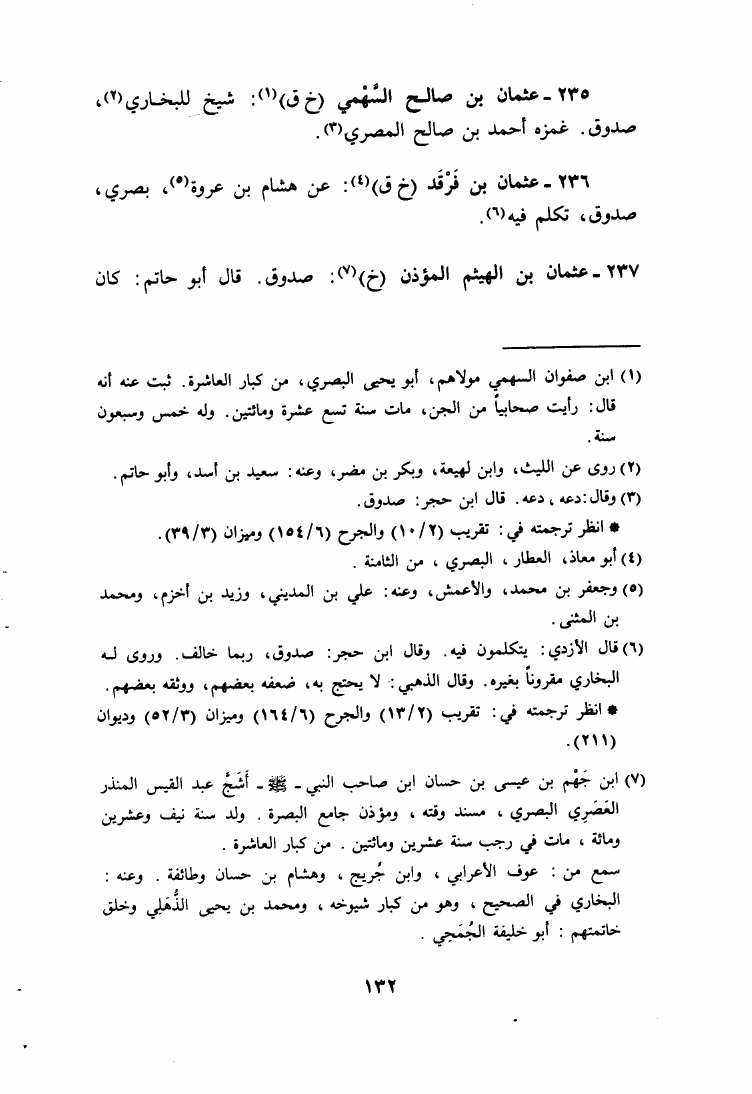 ٢٣٥ ـ عثمان بن صالح السَّهْمي (خ ق)(١): شيخ للبخاري(٢)،
صدوق. غمزه أحمد بن صالح المصري(٣).
٢٣٦ ـ عثمان بن فَرْقَد (خ ق)(٤): عن هشام بن عروة(٥)، بصري،
صدوق، تكلم فيه(٦).
٢٣٧ ـ عثمان بن الهيثم المؤذن (خ)(٧): صدوق. قال أبو حاتم: كان
(١) ابن صفوان السهمي مولاهم، أبو يحيى البصري، من كبار العاشرة. ثبت عنه أنه
قال: رأيت صحابياً من الجن، مات سنة تسع عشرة ومائتين. وله خمس وسبعون
سنة.
(٢) روى عن الليث، وابن لهيعة، وبكر بن مضر، وعنه: سعيد بن أسد، وأبو حاتم.
(٣) وقال:دعه، دعه. قال ابن حجر: صدوق.
* انظر ترجمته في: تقريب (١٠/٢) والجرح (١٥٤/٦) وميزان (٣٩/٣).
(٤) أبو معاذ، العطار ، البصري ، من الثامنة .
(٥) وجعفر بن محمد، والأعمش، وعنه: علي بن المديني، وزيد بن أخزم، ومحمد
بن المثنى.
(٦) قال الأزدي: يتكلمون فيه. وقال ابن حجر: صدوق، ربما خالف. وروى له
البخاري مقروناً بغيره. وقال الذهبي: لا يحتج به، ضعفه بعضهم، ووثقه بعضهم.
* انظر ترجمته في: تقريب (١٣/٢) والجرح (١٦٤/٦) وميزان (٥٢/٣) وديوان
(٢١١).
(٧) ابن جَهْم بن عيسى بن حسان ابن صاحب النبي ـ ﷺ ـ أَشَجُّ عبد القيس المنذر
العَصَرِي البصري ، مسند وقته ، ومؤذن جامع البصرة . ولد سنة نيف وعشرين
ومائة ، مات في رجب سنة عشرين ومائتين . من كبار العاشرة .
سمع من : عوف الأعرابي ، وابن جُريج ، وهشام بن حسان وطائفة . وعنه :
البخاري في الصحيح ، وهو من كبار شيوخه ، ومحمد بن يحيى الذُّهَلِي وخلق
خاتمتهم : أبو خليفة الجُمَحِي .
١٣٢